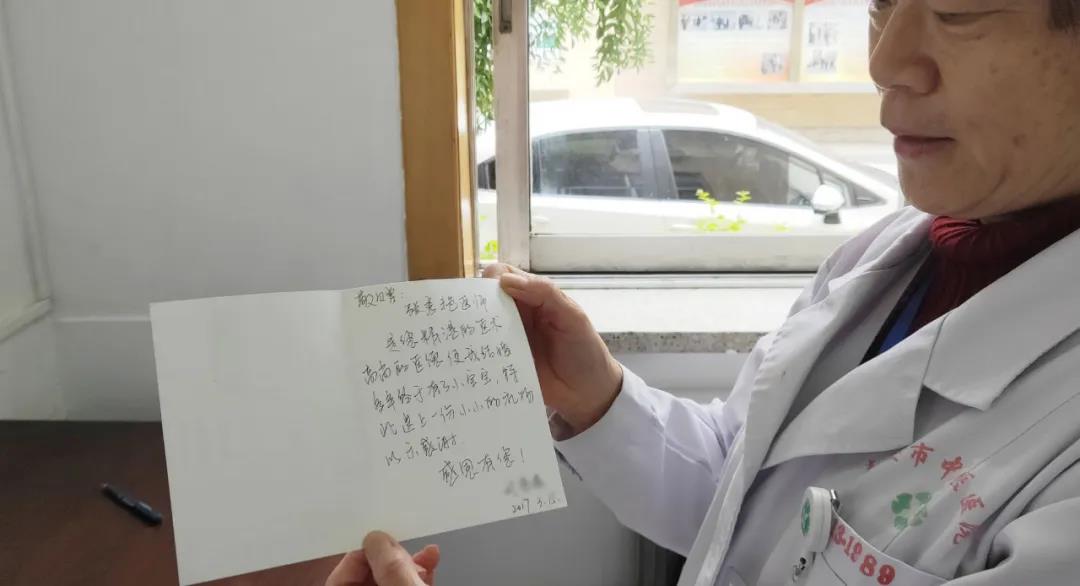 敬赠：
张 医师
是您精湛的医术
高尚的医德 使我结婚
多年终于有了小宝宝，特
此送上一份小小的礼物
以示感谢.
感恩有您！
2017. 3.
市中医医院
1989